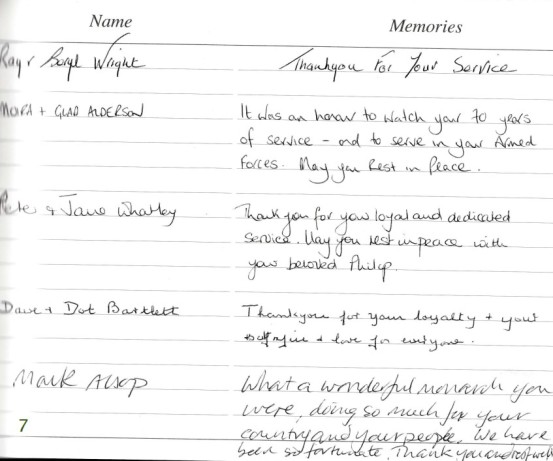 Name Memories
Ray & Beryl Wright Thankyou For Your Service
MOIRA + GLAD ALDERSON It was an honour to watch your 70 years
of service - and to serve in your Armed
Forces. May you Rest in Peace.
Pete & Jane Whatley Thank you for your loyal and dedicated
service. May you rest in peace with
your beloved Philip.
Dave + Dot Bartlett Thankyou for your loyalty + your
+ love for everyone.
Mark Alsop What a wonderful monarch you
were, doing so much for your
country and your people. We have
been so fortunate. Thank you and
7